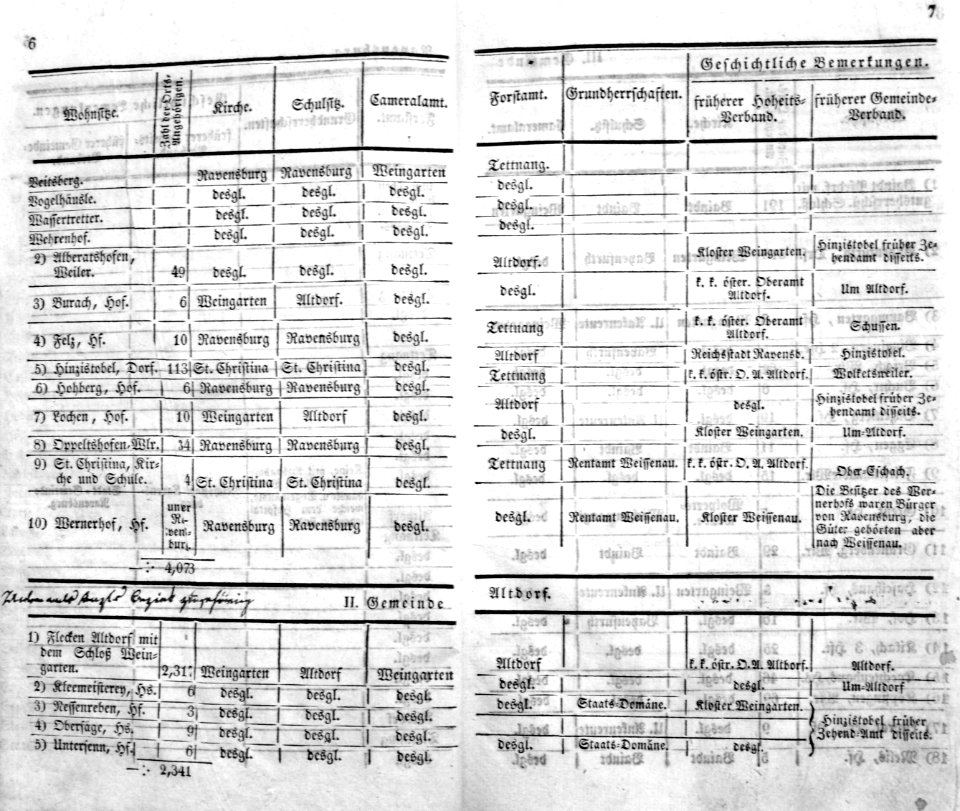 6
Wohnsitze.
Zahl der Orts-
Angehörigen.
Kirche.
Schulsitz.
Cameralamt.
Veitsberg. Ravensburg Ravensburg Weingarten
Vogelhäusle. desgl. desgl. desgl.
Wassertretter. desgl. desgl. desgl.
Wehrenhof. desgl. desgl. desgl.
2) Alberatshofen,
Weiler. 49 desgl. desgl. desgl.
3) Burach, Hof. 6 Weingarten Altdorf. desgl.
4) Felz, Hf. 10 Ravensburg Ravensburg desgl.
5) Hinzistobel, Dorf. 113 St. Christina St. Christina desgl.
6) Hohberg, Hof. 6 Ravensburg Ravensburg desgl.
7) Lochen, Hof. 10 Weingarten Altdorf desgl.
8) Oppeltshofen, Wlr. 34 Ravensburg Ravensburg desgl.
9) St. Christina, Kir-
che und Schule. 4 St. Christina St. Christina desgl.
10) Wernerhof, Hf. unter Ra-venf-burg. Ravensburg Ravensburg desgl.
—:· 4,073
II. Gemeinde
1) Flecken Altdorf mit
dem Schloß Wein-
garten. 2,317 Weingarten Altdorf Weingarten
2) Kleemeisterey, Hs. 6 desgl. desgl. desgl.
3) Nessenreben, Hf. 3 desgl. desgl. desgl.
4) Obersäge, Hs. 9 desgl. desgl. desgl.
5) Untersenn, Hf. 6 desgl. desgl. desgl.
—:· 2,341
7
Forstamt.
Grundherrschaften.
Geschichtliche Bemerkungen.
früherer Hoheits-
Verband.
früherer Gemeinde-
Verband.
Tettnang.
desgl.
desgl.
desgl.
Altdorf. Kloster Weingarten. Hinzistobel früher Ze-
hendamt disseits.
desgl. k. k. öster. Oberamt
Altdorf. Um Altdorf.
Tettnang k. k. öster. Oberamt
Altdorf. Schussen.
Altdorf Reichsstadt Ravensb. Hinzistobel.
Tettnang k. k. östr. O. A. Altdorf. Wolketsweiler.
Altdorf desgl. Hinzistobel früher Ze-
hendamt disseits.
desgl. Kloster Weingarten. Um-Altdorf.
Tettnang Rentamt Weissenau. k. k. östr. O. A. Altdorf. Ober-Eschach.
desgl. Rentamt Weissenau. Kloster Weissenau. Die Besitzer des Wer-
nerhofs waren Bürger
von Ravensburg, die
Güter gehörten aber
nach Weissenau.
Altdorf.
Altdorf k. k. östr. O. A. Altdorf. Altdorf.
desgl. desgl. Um-Altdorf
desgl. Staats-Domäne. Kloster Weingarten.
Hinzistobel früher
Zehend-Amt disseits.
desgl. Staats-Domäne. desgl.